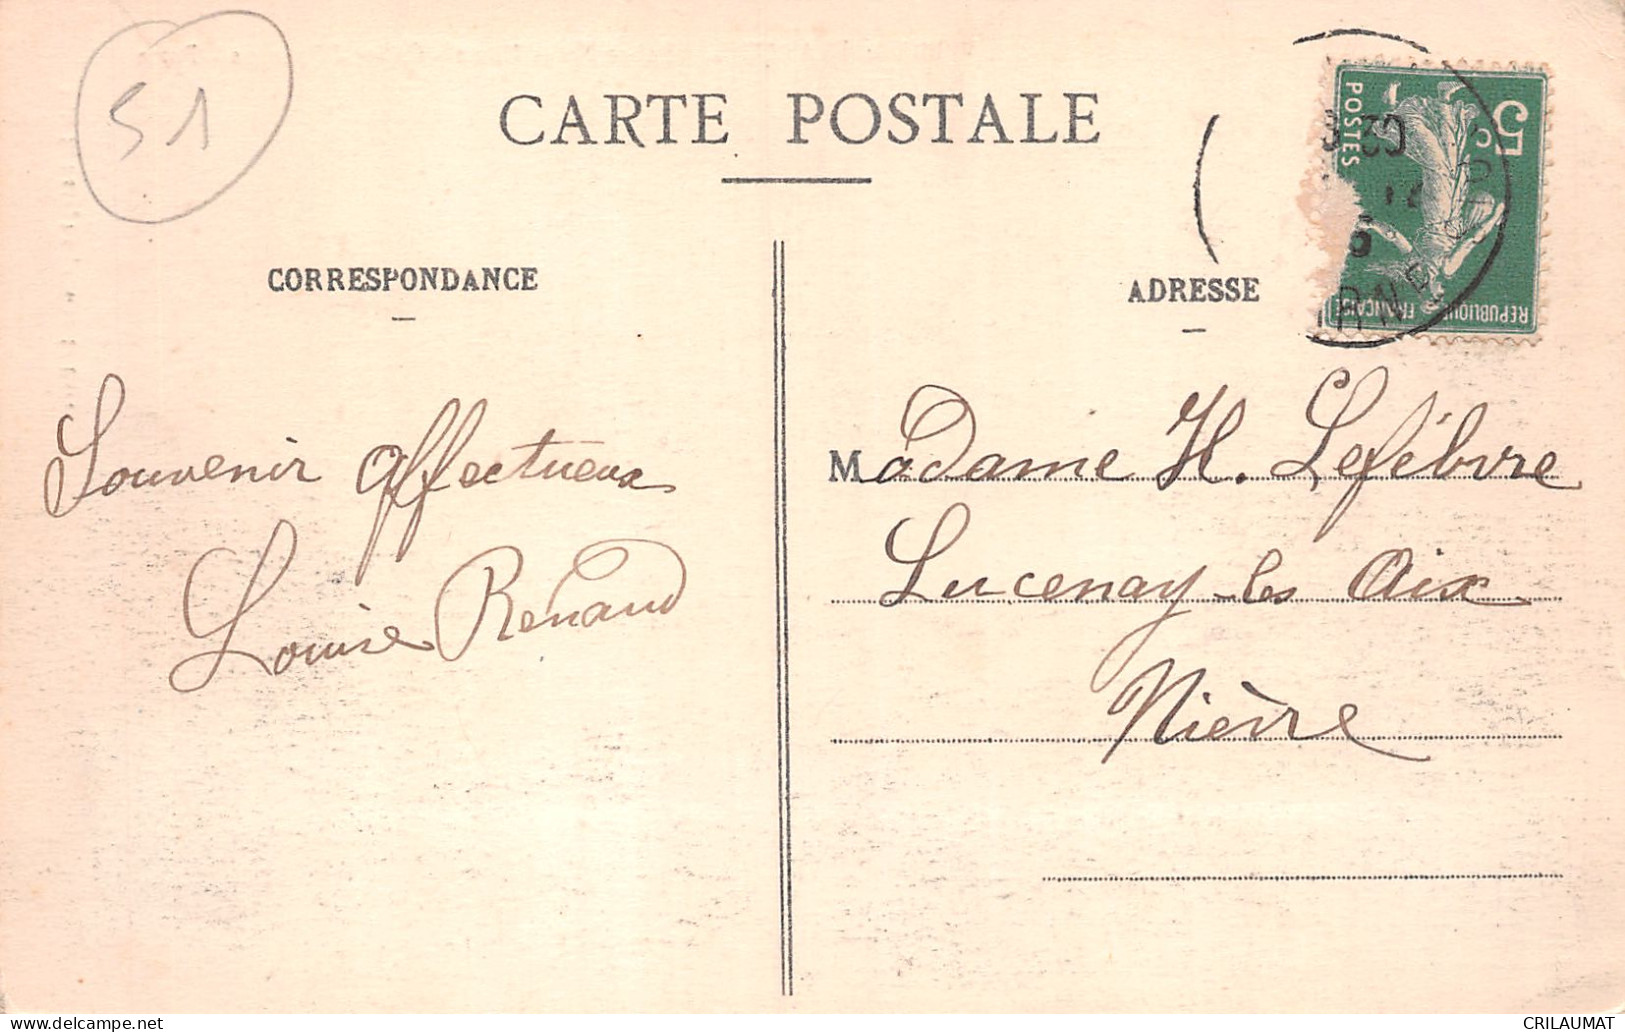 51
CARTE POSTALE
CORRESPONDANCE
ADRESSE
5c
POSTES
REPUBLIQUE FRANÇAISE
Souvenir affectueux
Louise Renaud
Madame H. Lefébvre
Lucenay-les Aix
Nièvre
www.delcampe.net
CRILAUMAT